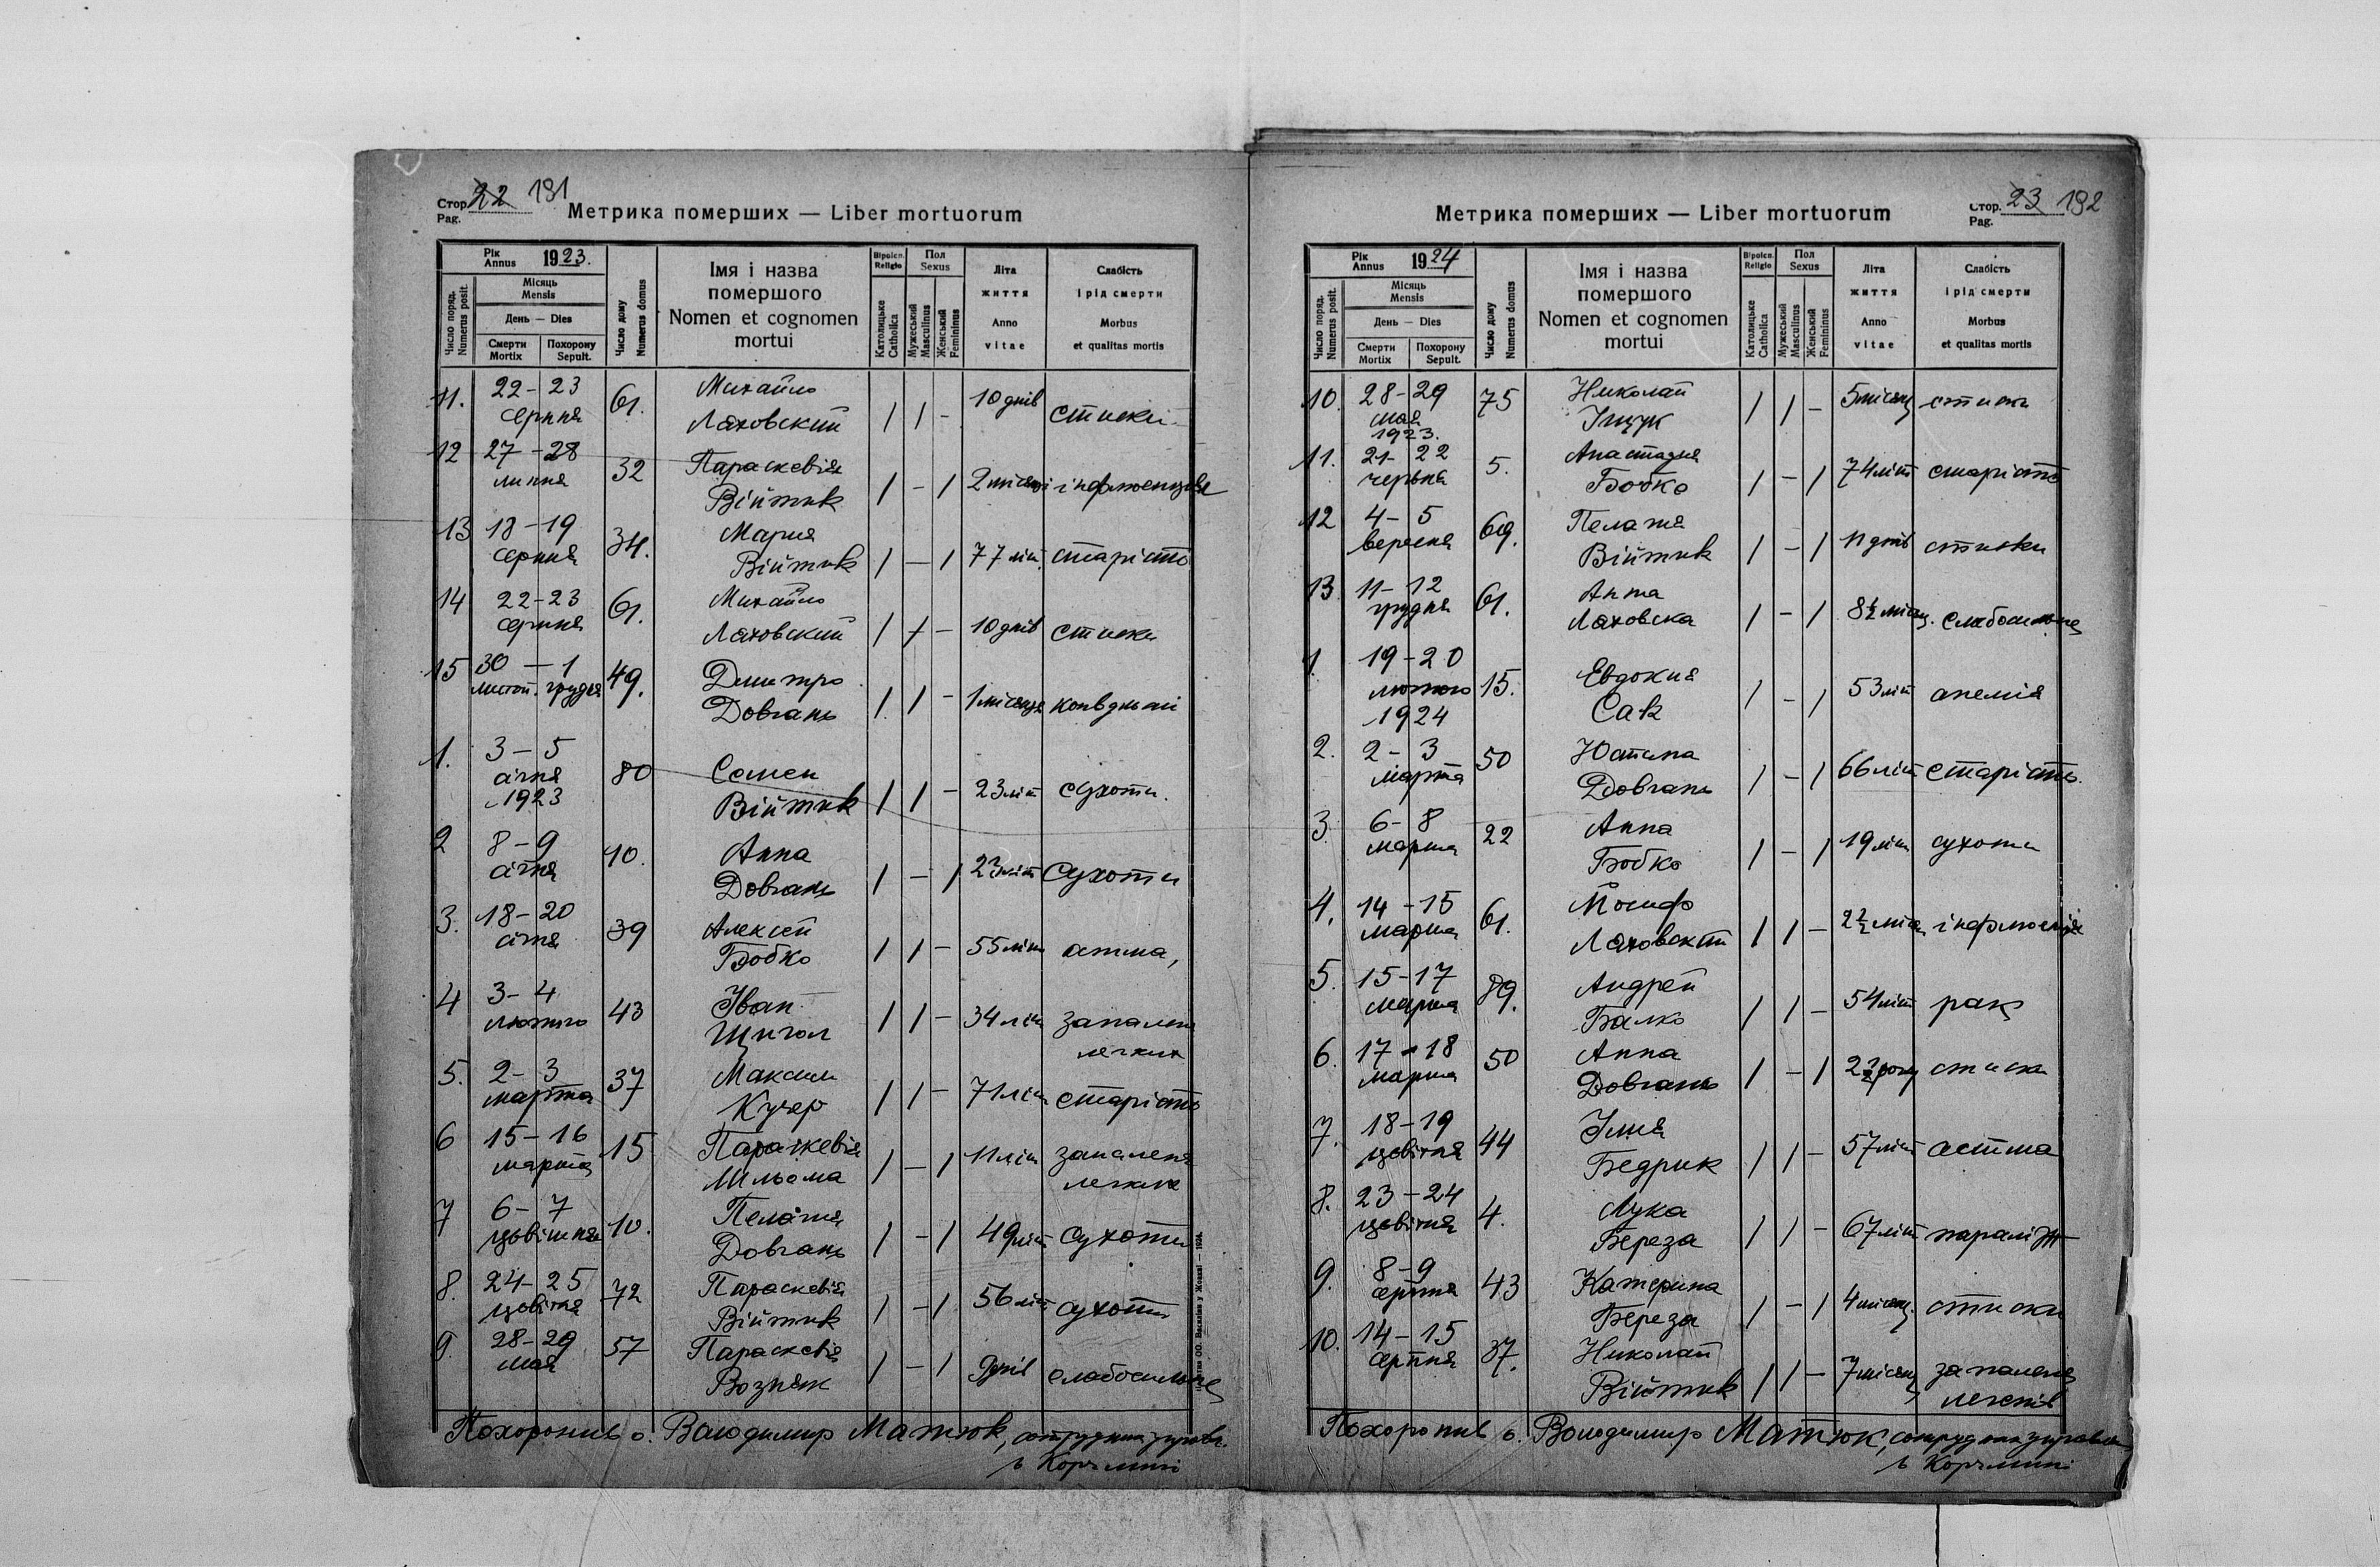 Стор. 22 191
Pag.
Метрика померших — Liber mortuorum
Рік
Annus 1923.
Число поряд.
Numerus posit.
Місяць
Mensis
День — Dies
Смерти
Mortix
Похорону
Sepult.
Число дому
Numerus domus
Імя і назва
помершого
Nomen et cognomen
mortui
Віроісп.
Religio
Католицьке
Catholica
Пол
Sexus
Мужеський
Masculinus
Женський
Femininus
Літа
життя
Anno
vitae
Слабість
і рід смерти
Morbus
et qualitas mortis
11. 22-23 серпня 61. Михайло Ляховский / / - 10 днів стиски
12 27-28 липня 32 Параскевія Війтик / - / 2 місяці інфлюенция
13 18-19 серпня 34. Мария Війтик / - / 77 літ старість
14 22-23 серпня 61. Михайло Ляховский / / - 10 днів стиски
15 30-1 листоп. грудня 49. Дмитро Довгань / / - 1 місяць
1. 3-5 січня 1923 80 Семен Війтик / / - 23 літ сухоти.
2 8-9 січня 10. Анна Довгань / - / 23 літ сухоти
3. 18-20 січня 39 Алексій Бобко / / - 55 літ атма,
4 3-4 лютого 43 Іван Щигол / / - 34 літ запаленя легких
5. 2-3 марта 37 Максим Кучер / / - 71 літ старість
6 15-16 марта 15 Параскевія Мильома / - / 11 літ запаленя легких
7 6-7 цьвітня 10. Пелагія Довгань / - / 49 літ сухоти
8. 24-25 цьвітня 72 Параскевія Війтик / - / 56 літ сухоти
9. 28-29 мая 57 Параскевія Возняк / - / 9 днів слабосильне
Похоронив о. Володимир Матюк, сотрудник
в Корчмині
Стор. 23 192
Pag.
Метрика померших — Liber mortuorum
Рік
Annus 1924
Число поряд.
Numerus posit.
Місяць
Mensis
День — Dies
Смерти
Mortix
Похорону
Sepult.
Число дому
Numerus domus
Імя і назва
помершого
Nomen et cognomen
mortui
Віроісп.
Religio
Католицьке
Catholica
Пол
Sexus
Мужеський
Masculinus
Женський
Femininus
Літа
життя
Anno
vitae
Слабість
і рід смерти
Morbus
et qualitas mortis
10. 28-29 мая 1923. 75 Николай Іщук / / - 5 місяц стиски
11. 21-22 червня 5. Анастазия Бобко / - / 74 літ старість
12 4-5 вересня 69. Пелагія Війтик / - / 11 днів стиски
13. 11-12 грудня 61. Анна Ляховска / - / 8½ місяц. слабосильне
1. 19-20 лютого 1924 15. Евдокия Сак / - / 53 літ анемія
2. 2-3 марта 50 Юстина Довгань / - / 66 літ старість.
3. 6-8 марта 22 Анна Бобко / - / 19 літ сухоти
4. 14-15 марта 61. Йосиф Ляховский / / - 2½ місяц інфлюенція
5. 15-17 марта 89. Андрей Балко / / - 54 літ рак
6. 17-18 марта 50 Анна Довгань / - / 2½ року стиски
7. 18-19 цьвітня 44 Ілия Бедрик / / - 57 літ астма
8. 23-24 цьвітня 4. Лука Береза / / - 67 літ параліж
9. 8-9 серпня 43 Катерина Береза / - / 4 місяц. стиски
10. 14-15 серпня 37. Николай Війтик / / - 7 місяц запаленя легких
Похоронив о. Володимир Матюк, сотрудник
в Корчмині